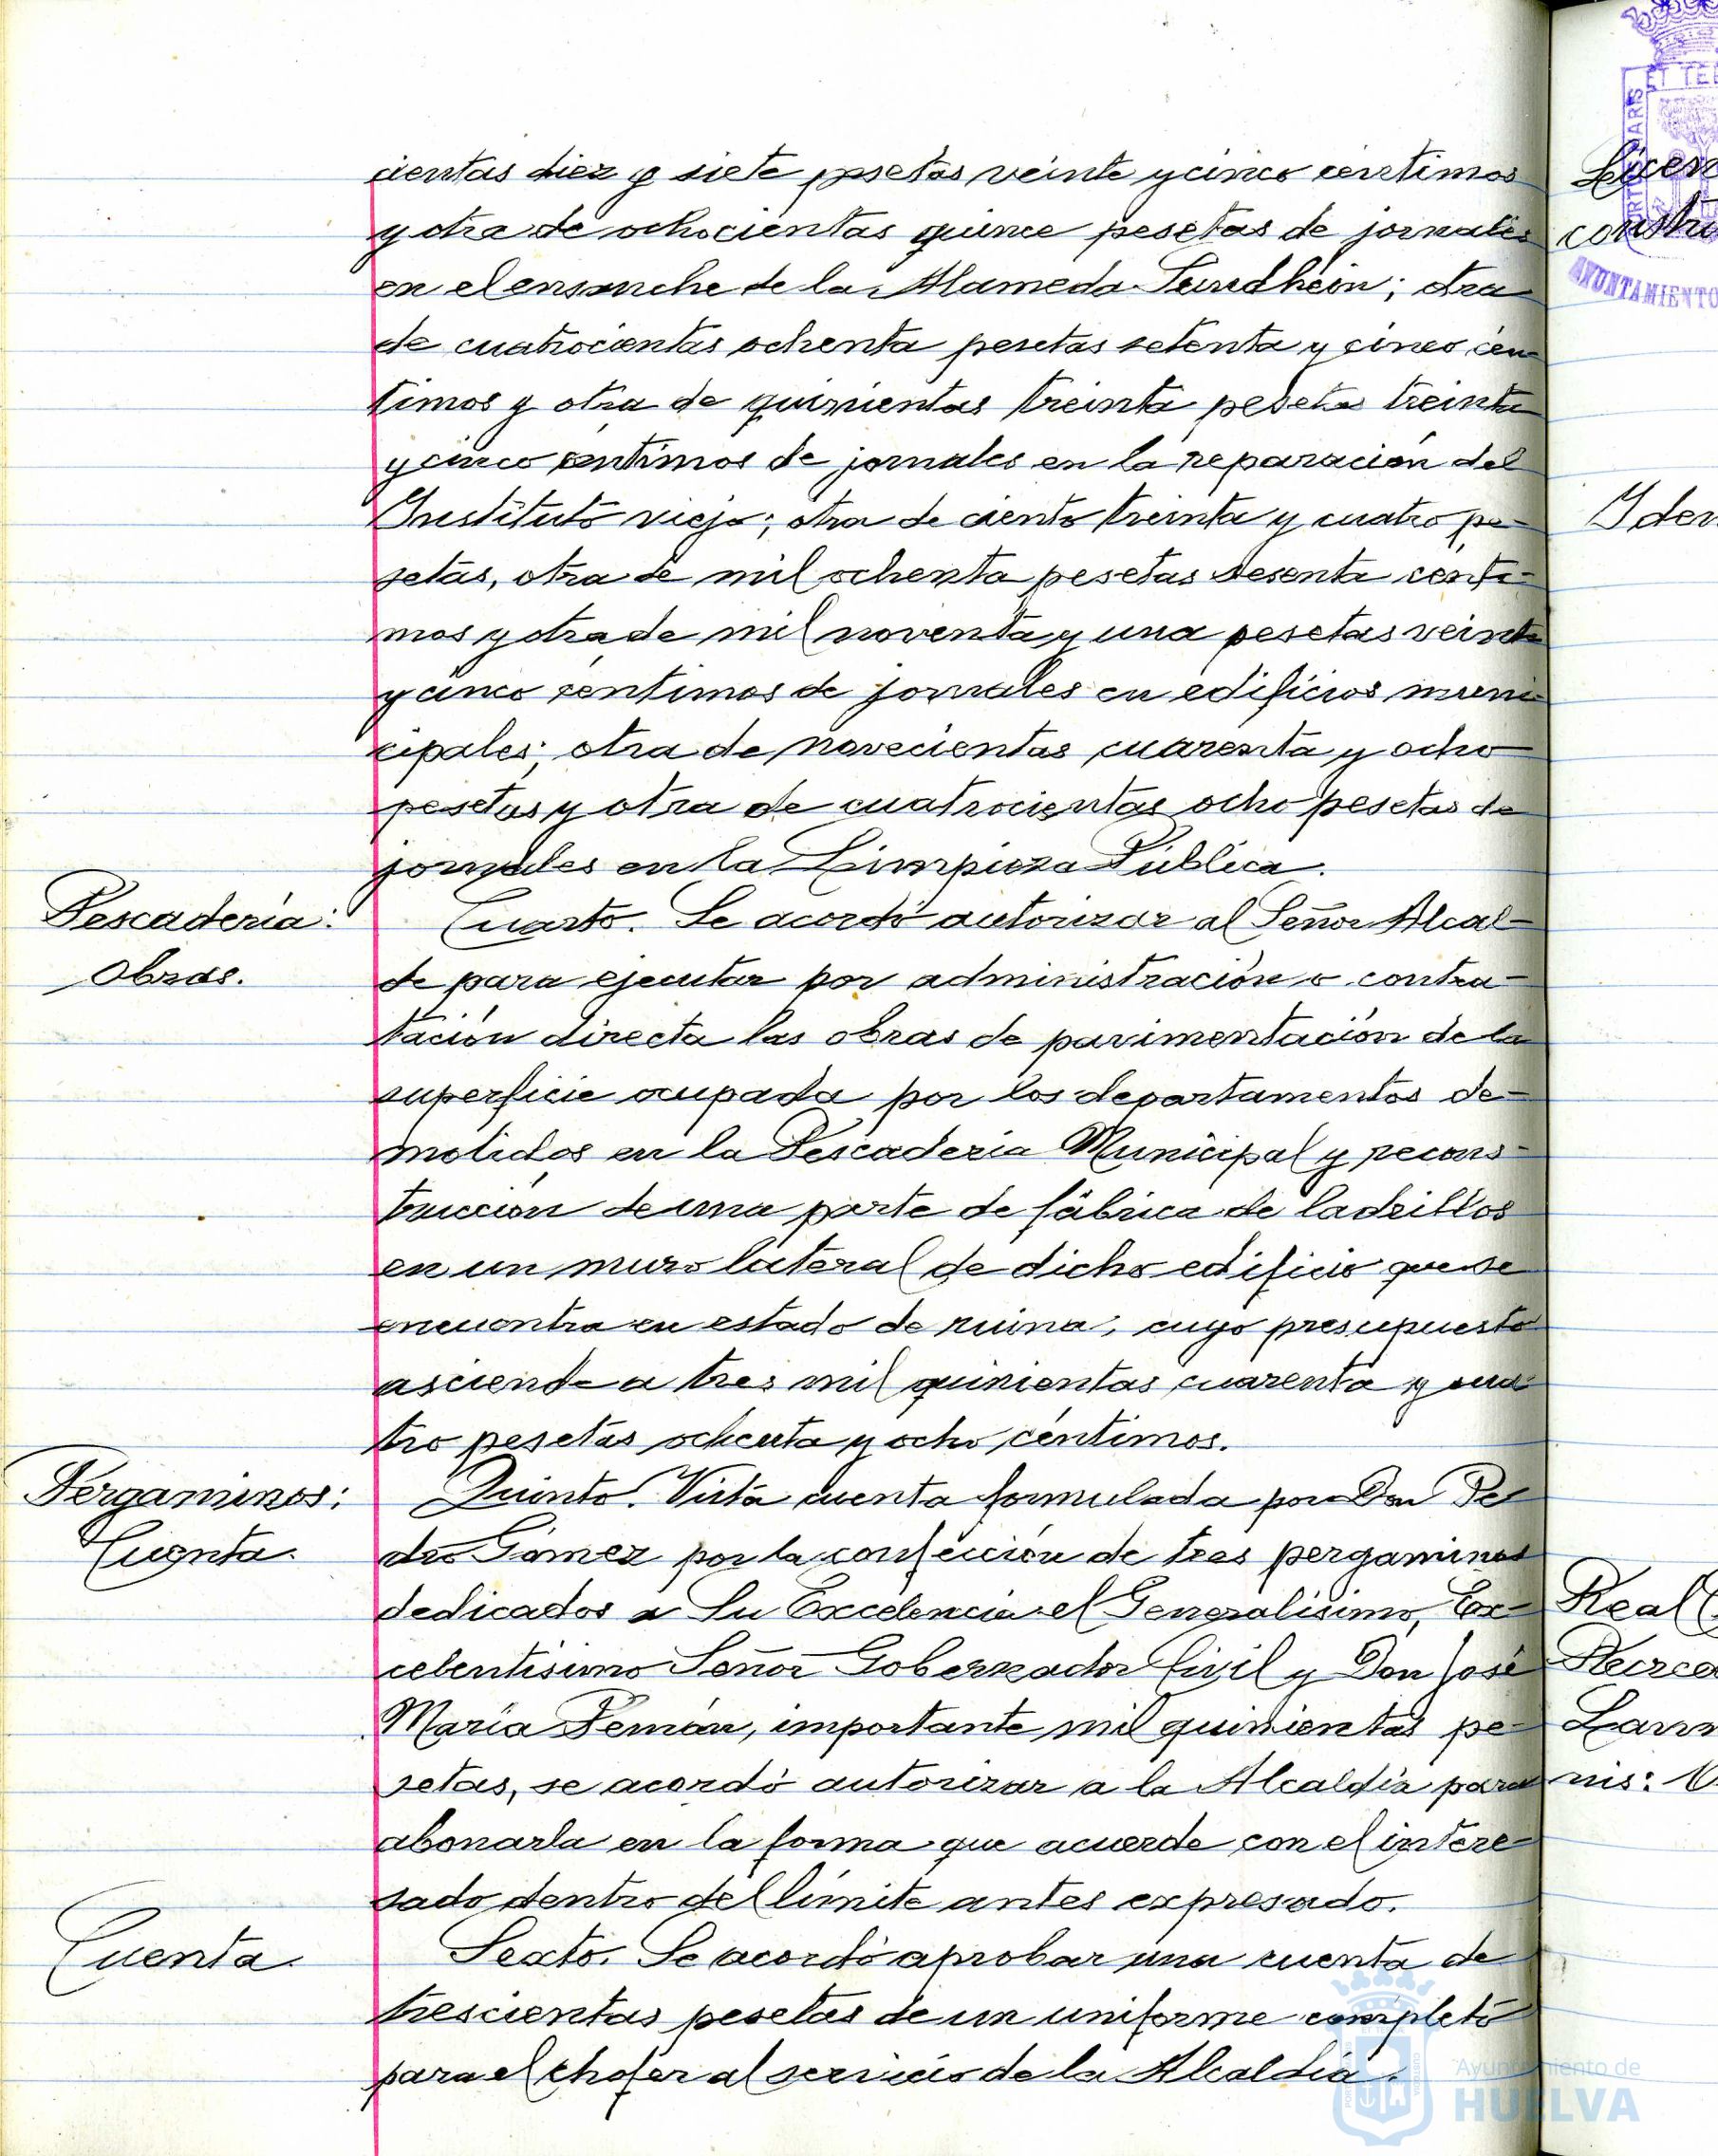 cientas diez y siete pesetas veinte y cinco centimos
y otra de ochocientas quince pesetas de jornales
en el ensanche de la Alameda Sundhein; otra
de cuatrocientas ochenta pesetas setenta y cinco cén-
timos y otra de quinientas treinta pesetas treinta
y cinco céntimos de jornales en la reparación del
Instituto viejo; otra de ciento treinta y cuatro pe-
setas, otra de mil ochenta pesetas sesenta cénti-
mos y otra de mil noventa y una pesetas veinte
y cinco céntimos de jornales en edificios muni-
cipales; otra de novecientas cuarenta y ocho
pesetas y otra de cuatrocientas ocho pesetas de
jornales en la Limpieza Pública.
Pescadería:
Obras.
Cuarto. Se acordó autorizar al Señor Alcal-
de para ejecutar por administración o contra-
tación directa las obras de pavimentación de la
superficie ocupada por los departamentos de-
molidos en la Pescadería Municipal y recons-
trucción de una parte de fábrica de ladrillos
en un muro lateral de dicho edificio que se
encuentra en estado de ruina, cuyo presupuesto
asciende a tres mil quinientas cuarenta y cua-
tro pesetas ochenta y ocho céntimos.
Pergaminos:
Cuenta.
Quinto. Vista cuenta formulada por Don Pe-
dro Gómez por la confección de tres pergaminos
dedicados a Su Excelencia el Generalísimo, Ex-
celentísimo Señor Gobernador Civil y Don José
María Pemán, importante mil quinientas pe-
setas, se acordó autorizar a la Alcaldía para
abonarla en la forma que acuerde con el intere-
sado dentro del límite antes expresado.
Cuenta.
Sexto. Se acordó aprobar una cuenta de
trescientas pesetas de un uniforme completo
para el chofer al servicio de la Alcaldía.
Licen
constru
AYUNTAMIENTO
Iden
Real
Larr
nis:
Ayuntamiento de
HUELVA